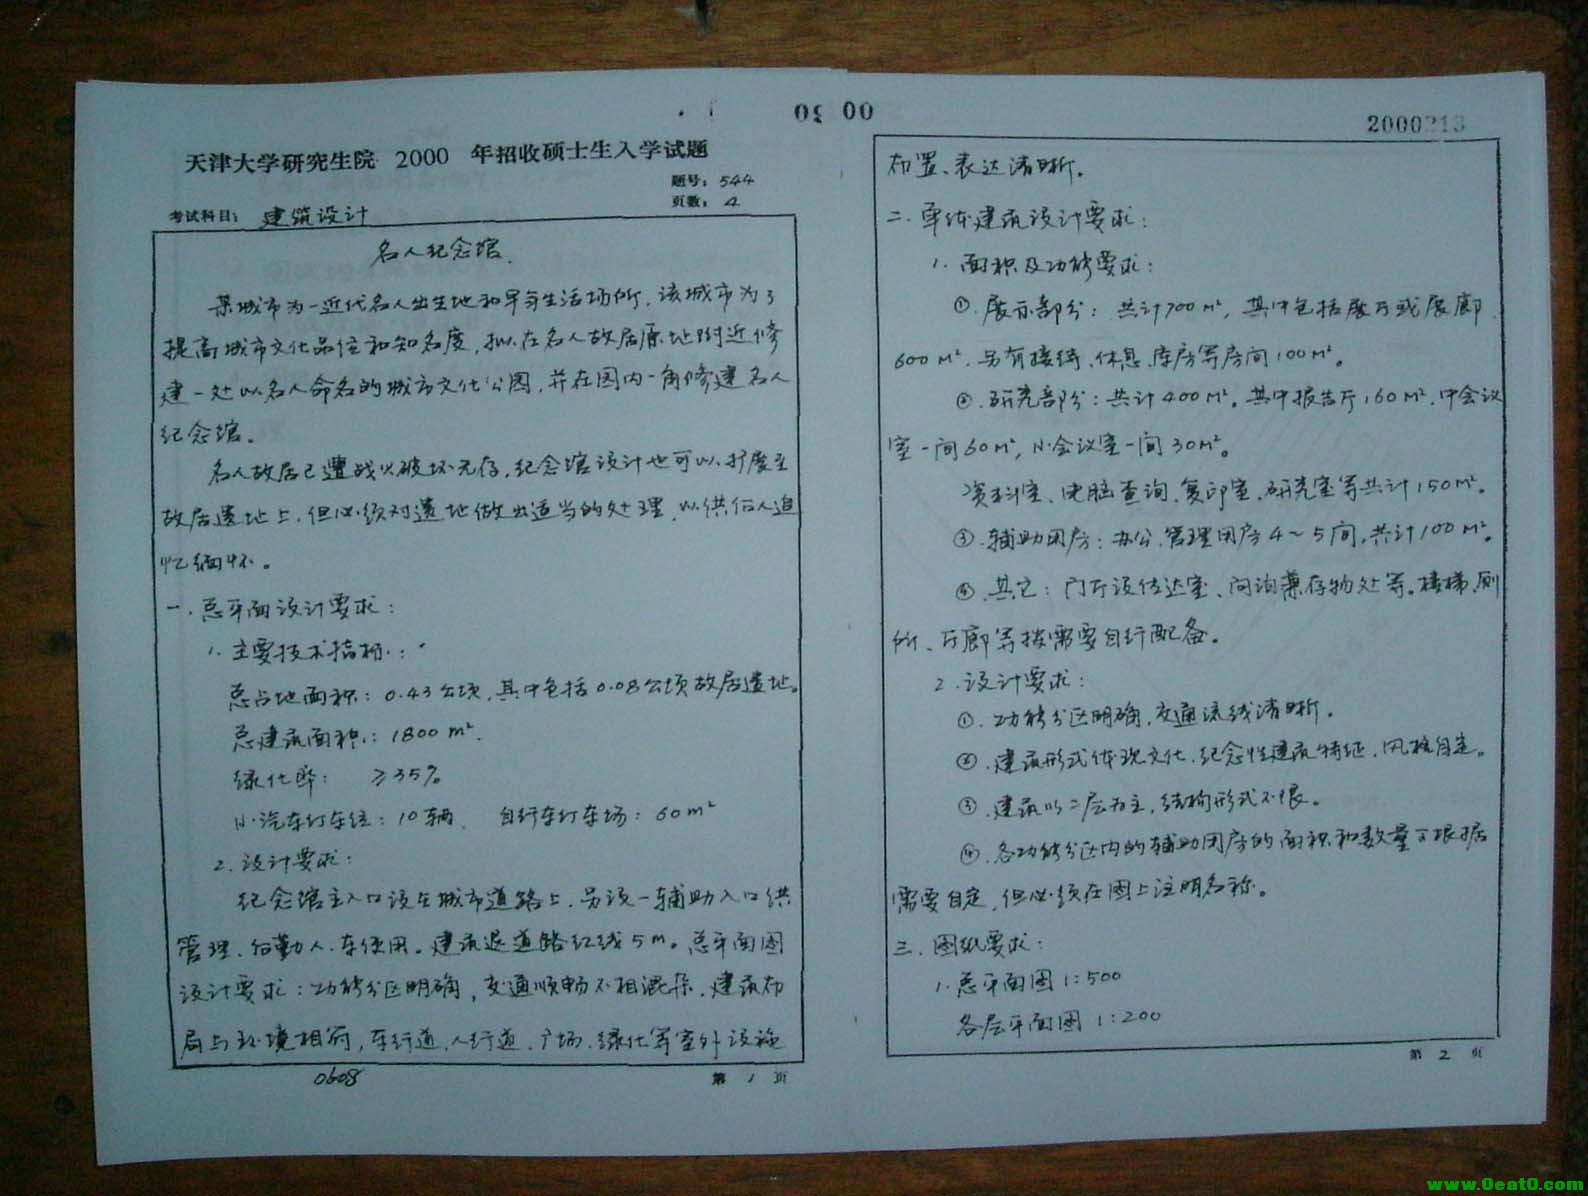 天津大学研究生院 2000 年招收硕士生入学试题
题号: 544
考试科目: 建筑设计
页数: 4
名人纪念馆.
某城市为一近代名人出生地和早年生活场所, 该城市为了
提高城市文化品位和知名度, 拟在名人故居原地附近修
建一处以名人命名的城市文化公园, 并在园内一角修建名人
纪念馆。
名人故居已遭战火破坏无存, 纪念馆设计也可以扩展至
故居遗址上, 但必须对遗址做出适当的处理, 以供后人追
忆缅怀。
一. 总平面设计要求:
1. 主要技术指标:
总占地面积: 0.43公顷, 其中包括0.08公顷故居遗址。
总建筑面积: 1800 m².
绿化率: ≥35%
小汽车停车位: 10辆. 自行车停车场: 60m²
2. 设计要求:
纪念馆主入口设在城市道路上. 另设一辅助入口供
管理、后勤人、车使用。建筑退道路红线5m。总平面图
设计要求: 功能分区明确, 交通顺畅不相混杂, 建筑布
局与环境相符, 车行道、人行道、广场、绿化等室外设施
0608
第 1 页
2000213
布置、表达清晰。
二. 单体建筑设计要求:
1. 面积及功能要求:
①. 展示部分: 共计700m², 其中包括展厅或展廊
600m². 另有接待、休息、库房等房间100m²。
②. 研究部分: 共计400m²。其中报告厅160m², 中会议
室一间60m², 小会议室一间30m²。
资料室、电脑查询、复印室、研究室等共计150m²。
③. 辅助用房: 办公、管理用房4~5间, 共计100m²。
④. 其它: 门厅设传达室、问询兼存物处等。楼梯、厕
所、厅廊等按需要自行配备。
2. 设计要求:
①. 功能分区明确, 交通流线清晰。
②. 建筑形式体现文化、纪念性建筑特征, 风格自定。
③. 建筑以二层为主, 结构形式不限。
④. 各功能分区内的辅助用房的面积和数量可根据
需要自定, 但必须在图上注明名称。
三. 图纸要求:
1. 总平面图 1:500
各层平面图 1:200
第 2 页
www.0eat0.com